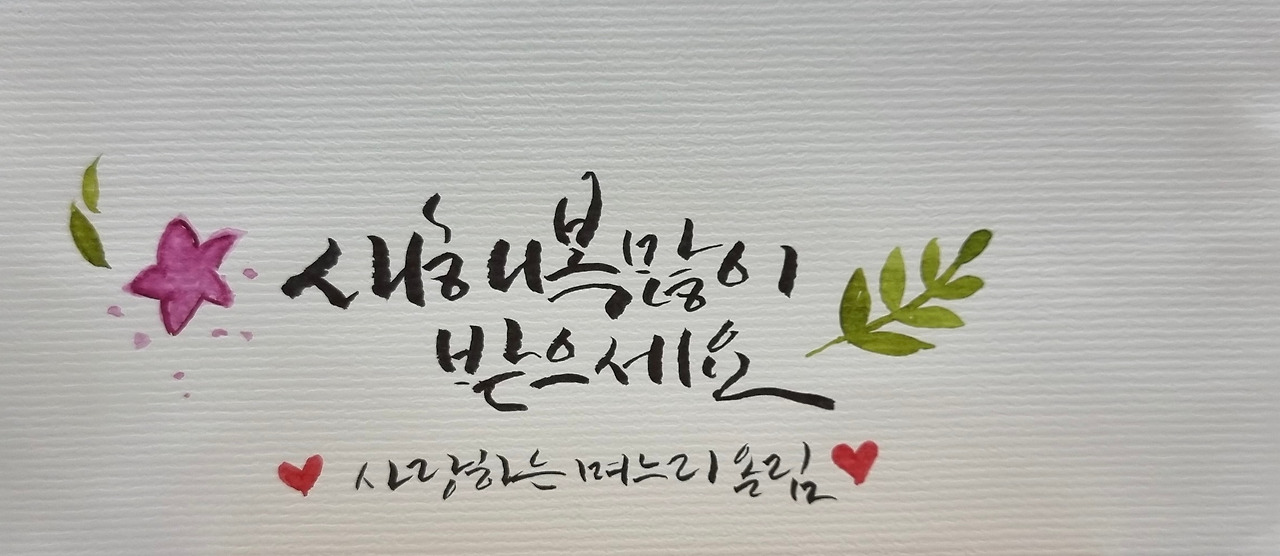 새해 복 많이
받으세요
사랑하는 며느리 올림